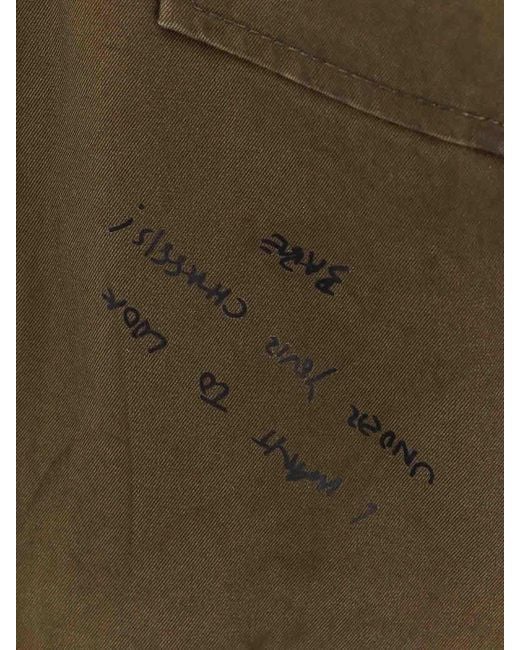 I WANT TO LOOK
UNDER YOUR CHASSIS!
BABE